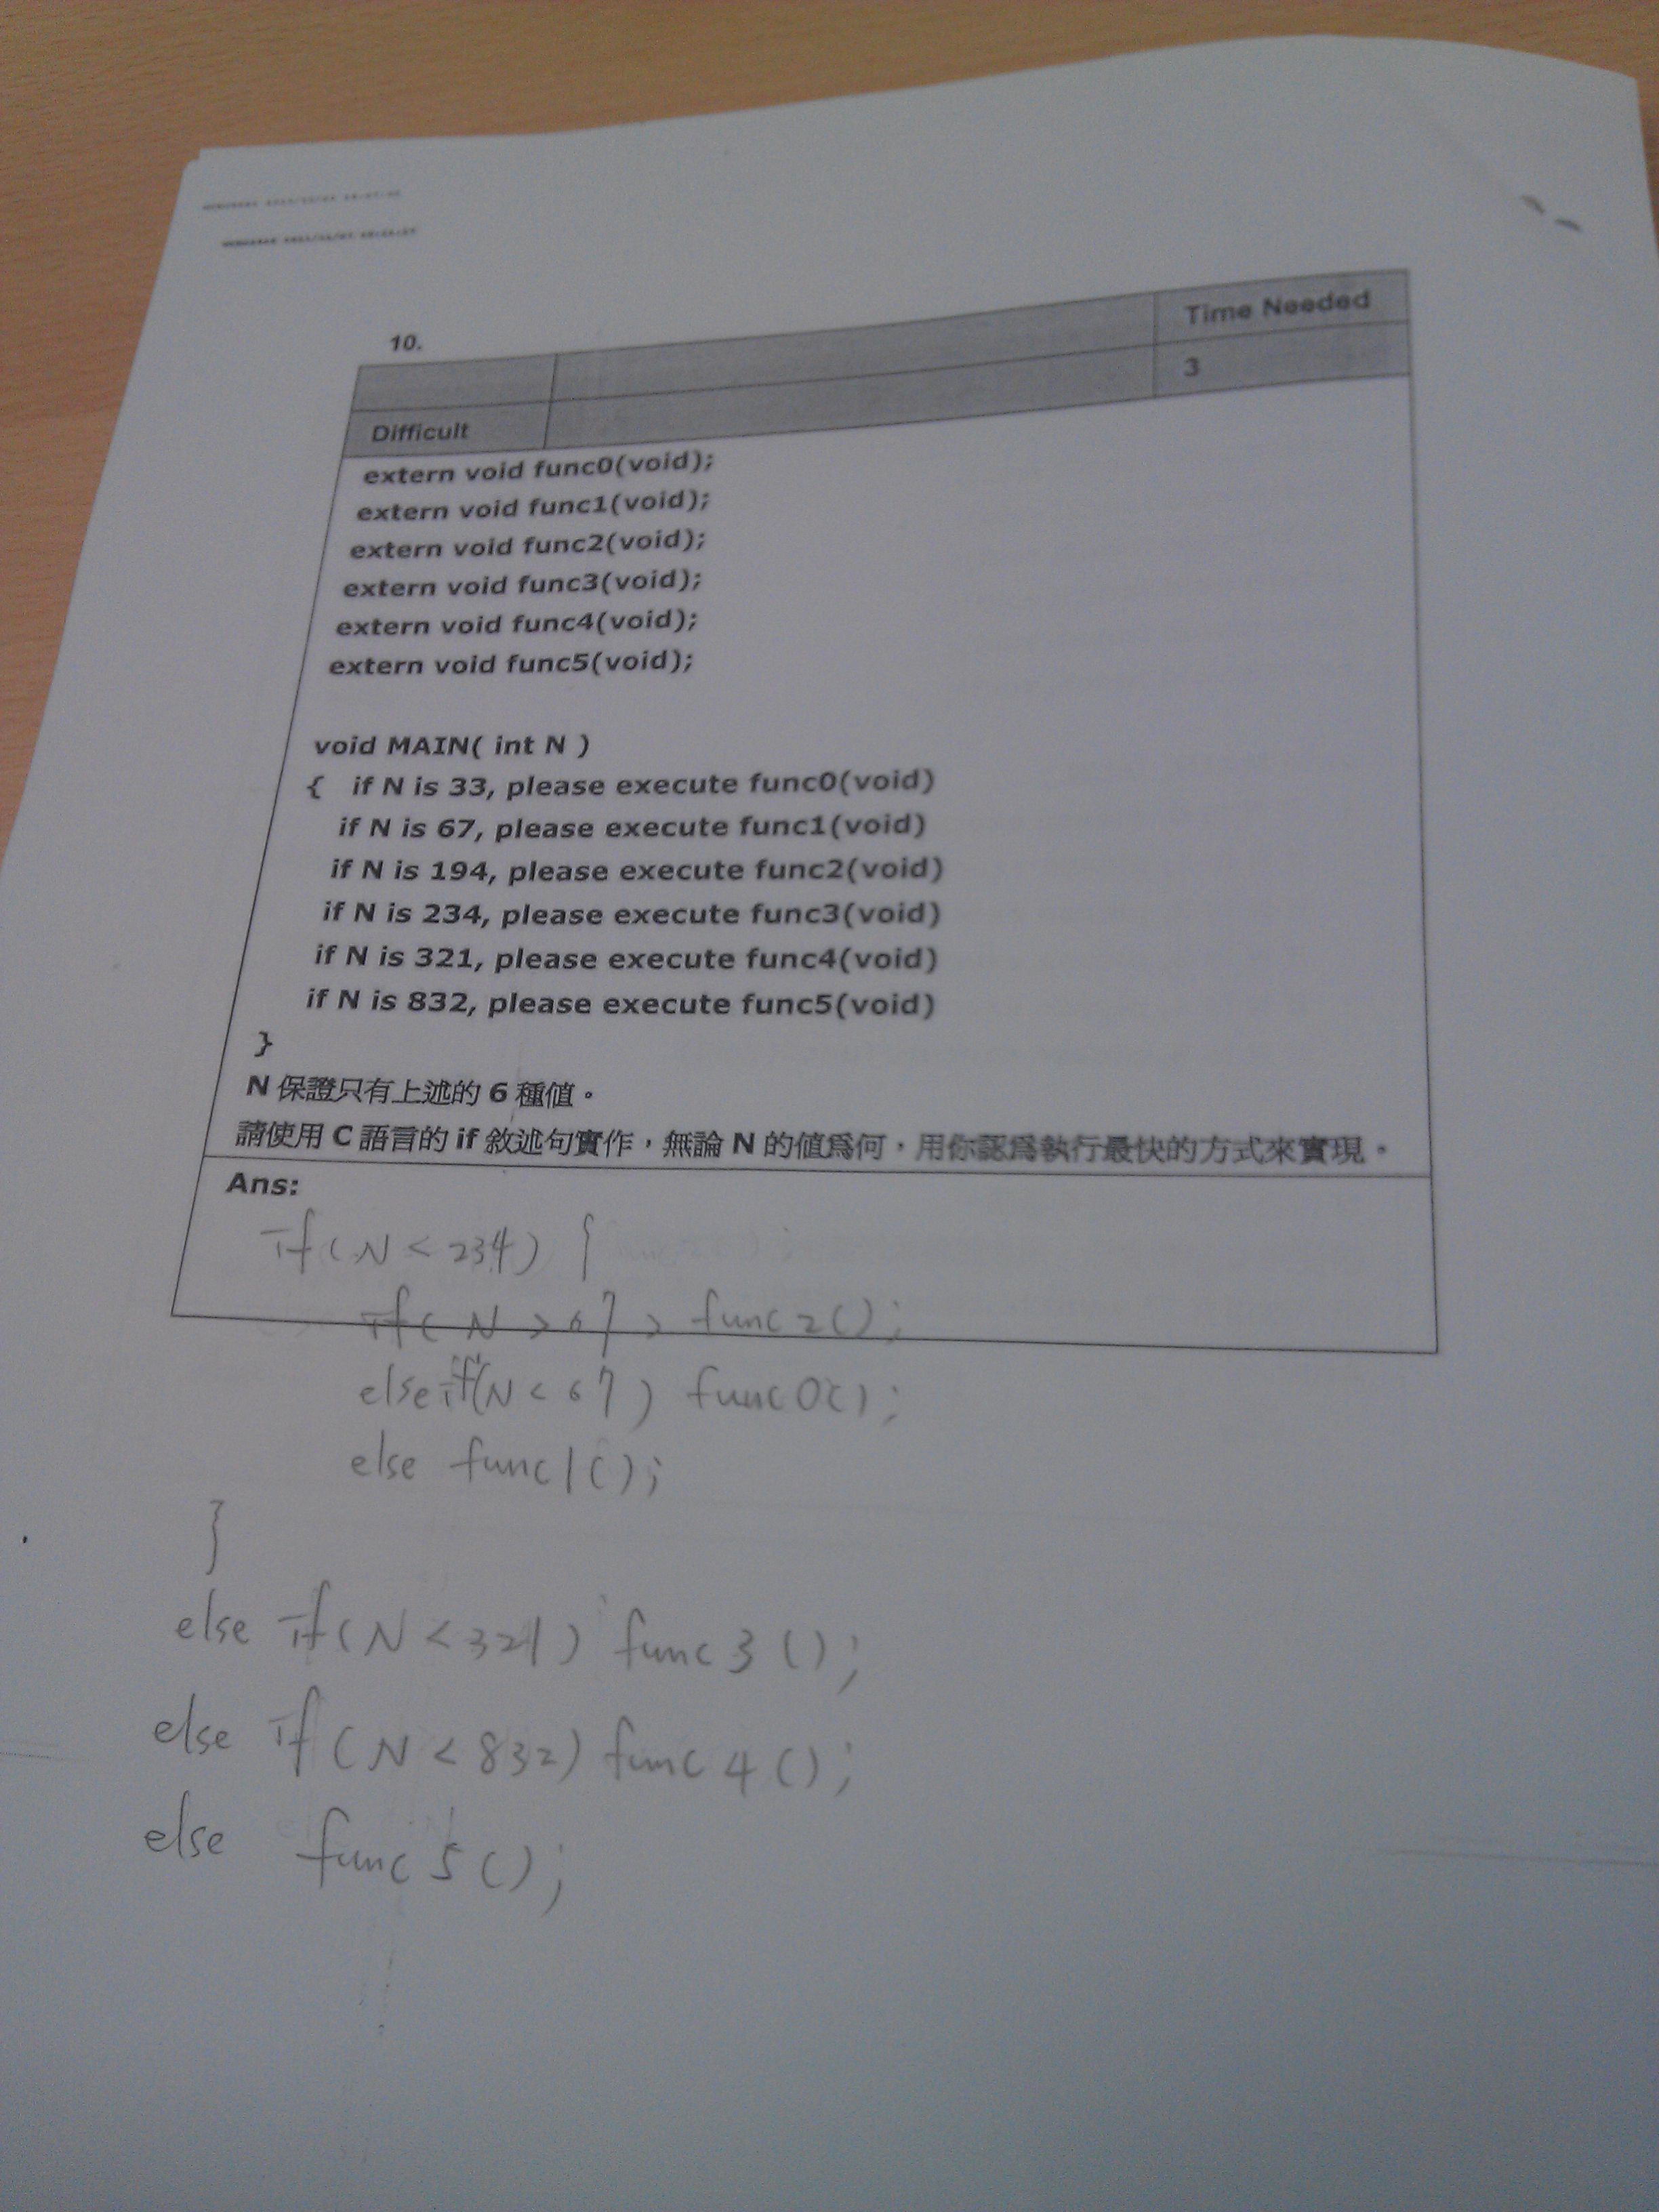 10.
Time Needed
3
Difficult
extern void func0(void);
extern void func1(void);
extern void func2(void);
extern void func3(void);
extern void func4(void);
extern void func5(void);
void MAIN( int N )
{ if N is 33, please execute func0(void)
if N is 67, please execute func1(void)
if N is 194, please execute func2(void)
if N is 234, please execute func3(void)
if N is 321, please execute func4(void)
if N is 832, please execute func5(void)
}
N 保證只有上述的 6 種值。
請使用 C 語言的 if 敘述句實作，無論 N 的值為何，用你認為執行最快的方式來實現。
Ans:
if(N < 234) {
if( N > 67 ) func2();
else if(N < 67) func0();
else func1();
}
else if(N < 321) func3();
else if(N < 832) func4();
else func5();